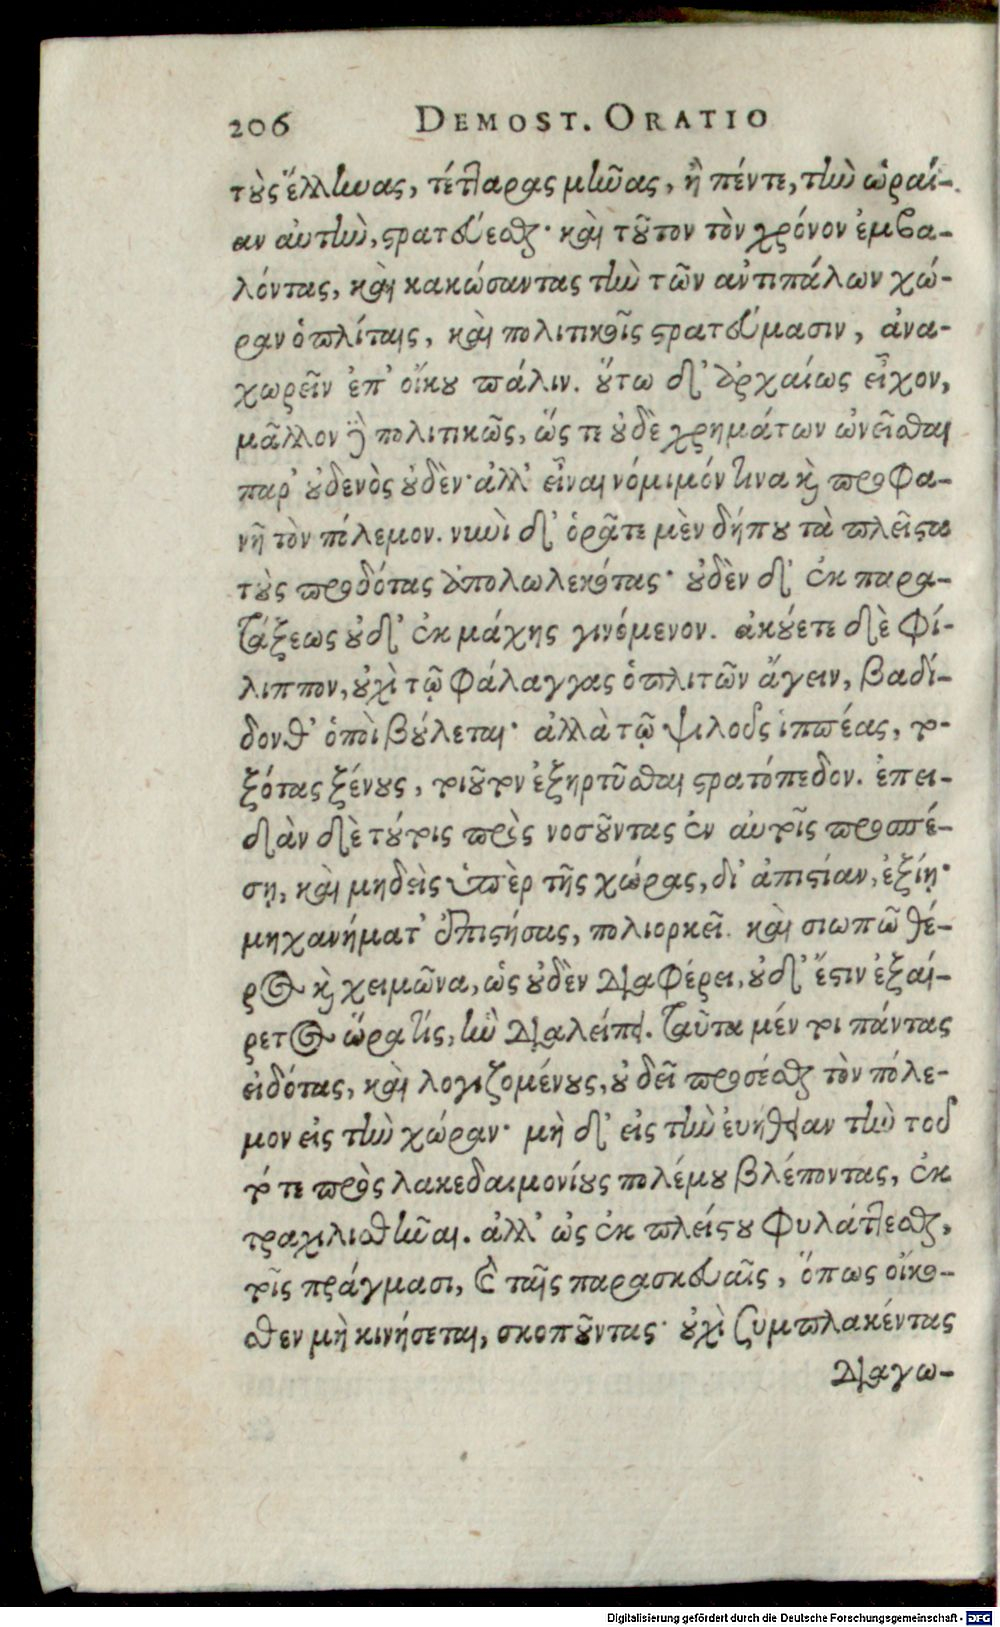 206 DEMOST. ORATIO
τοὺς ἕλληνας, τέτταρας μῆνας, ἢ πέντε, τὴν ὡραί-
αν αὐτὴν, στρατεύεσθαι· καὶ τοῦτον τὸν χρόνον ἐμβα-
λόντας, καὶ κακώσαντας τὴν τῶν ἀντιπάλων χώ-
ραν ὁπλίταις, καὶ πολιτικοῖς στρατεύμασιν, ἀνα-
χωρεῖν ἐπ' οἴκου πάλιν. οὕτω δ' ἀρχαίως εἶχον,
μᾶλλον δὲ πολιτικῶς, ὥς τε οὐδὲ χρημάτων ὠνεῖσθαι
παρ' οὐδενὸς οὐδὲν· ἀλλ' εἶναι νόμιμόν τινα καὶ προφα-
νῆ τὸν πόλεμον. νυνὶ δ' ὁρᾶτε μὲν δήπου τὰ πλεῖστα
τοὺς προδότας ἀπολωλεκότας· οὐδὲν δ' ἐκ παρα-
τάξεως οὐδ' ἐκ μάχης γινόμενον. ἀκούετε δὲ Φί-
λιππον, οὐχὶ τῷ φάλαγγας ὁπλιτῶν ἄγειν, βαδί-
ζονθ' ὁποὶ βούλεται· ἀλλὰ τῷ ψιλοὺς ἱππέας, το-
ξότας ξένους, τοιοῦτον ἐξηρτῦσθαι στρατόπεδον. ἐπει-
δὰν δὲ τούτοις πρὸς νοσοῦντας ἐν αὑτοῖς προσπέ-
σῃ, καὶ μηδεὶς ὑπὲρ τῆς χώρας, δι' ἀπιστίαν, ἐξίῃ·
μηχανήματ' ἐπιστήσας, πολιορκεῖ. καὶ σιωπῶ θέ-
ρος καὶ χειμῶνα, ὡς οὐδὲν διαφέρει, οὐδ' ἔστιν ἐξαί-
ρετος ὥρα τίς, ἣν διαλείπει. ταῦτα μέν τοι πάντας
εἰδότας, καὶ λογιζομένους, οὐ δεῖ προσέσθαι τὸν πόλε-
μον εἰς τὴν χώραν· μὴ δ' εἰς τὴν εὐήθειαν τὴν τοῦ
τό τε πρὸς λακεδαιμονίους πολέμου βλέποντας, ἐκ
τραχιλισθῆναι. ἀλλ' ὡς ἐκ πλείστου φυλάττεσθαι,
τοῖς πράγμασι, καὶ ταῖς παρασκευαῖς, ὅπως οἴκο-
θεν μὴ κινήσεται, σκοποῦντας· οὐχὶ συμπλακέντας
διαγω-
Digitalisierung gefördert durch die Deutsche Forschungsgemeinschaft · DFG